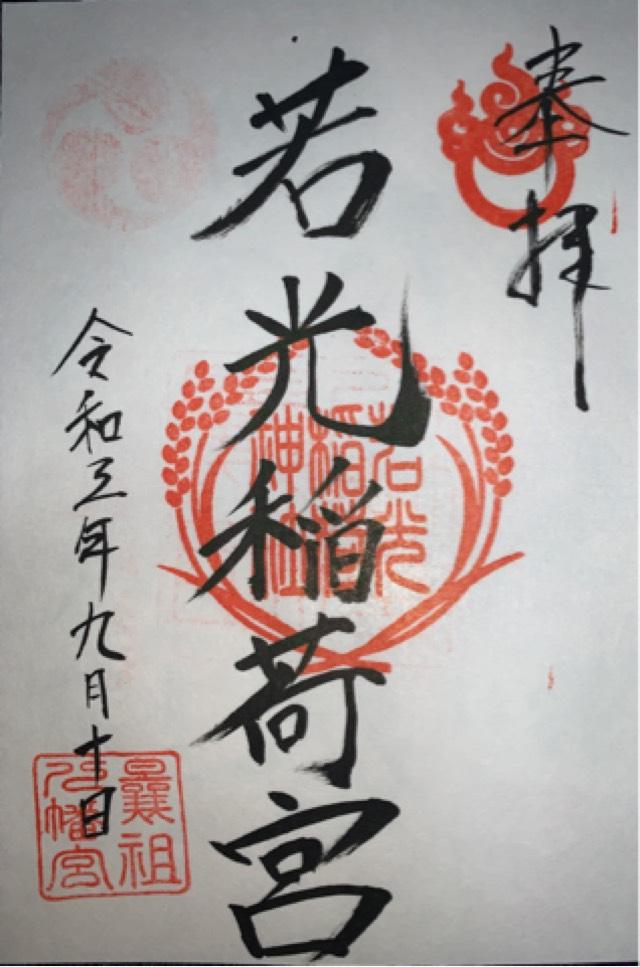 奉拝
若光稲荷宮
若光
稲荷
神社
令和三年九月十日
曩祖
八幡宮